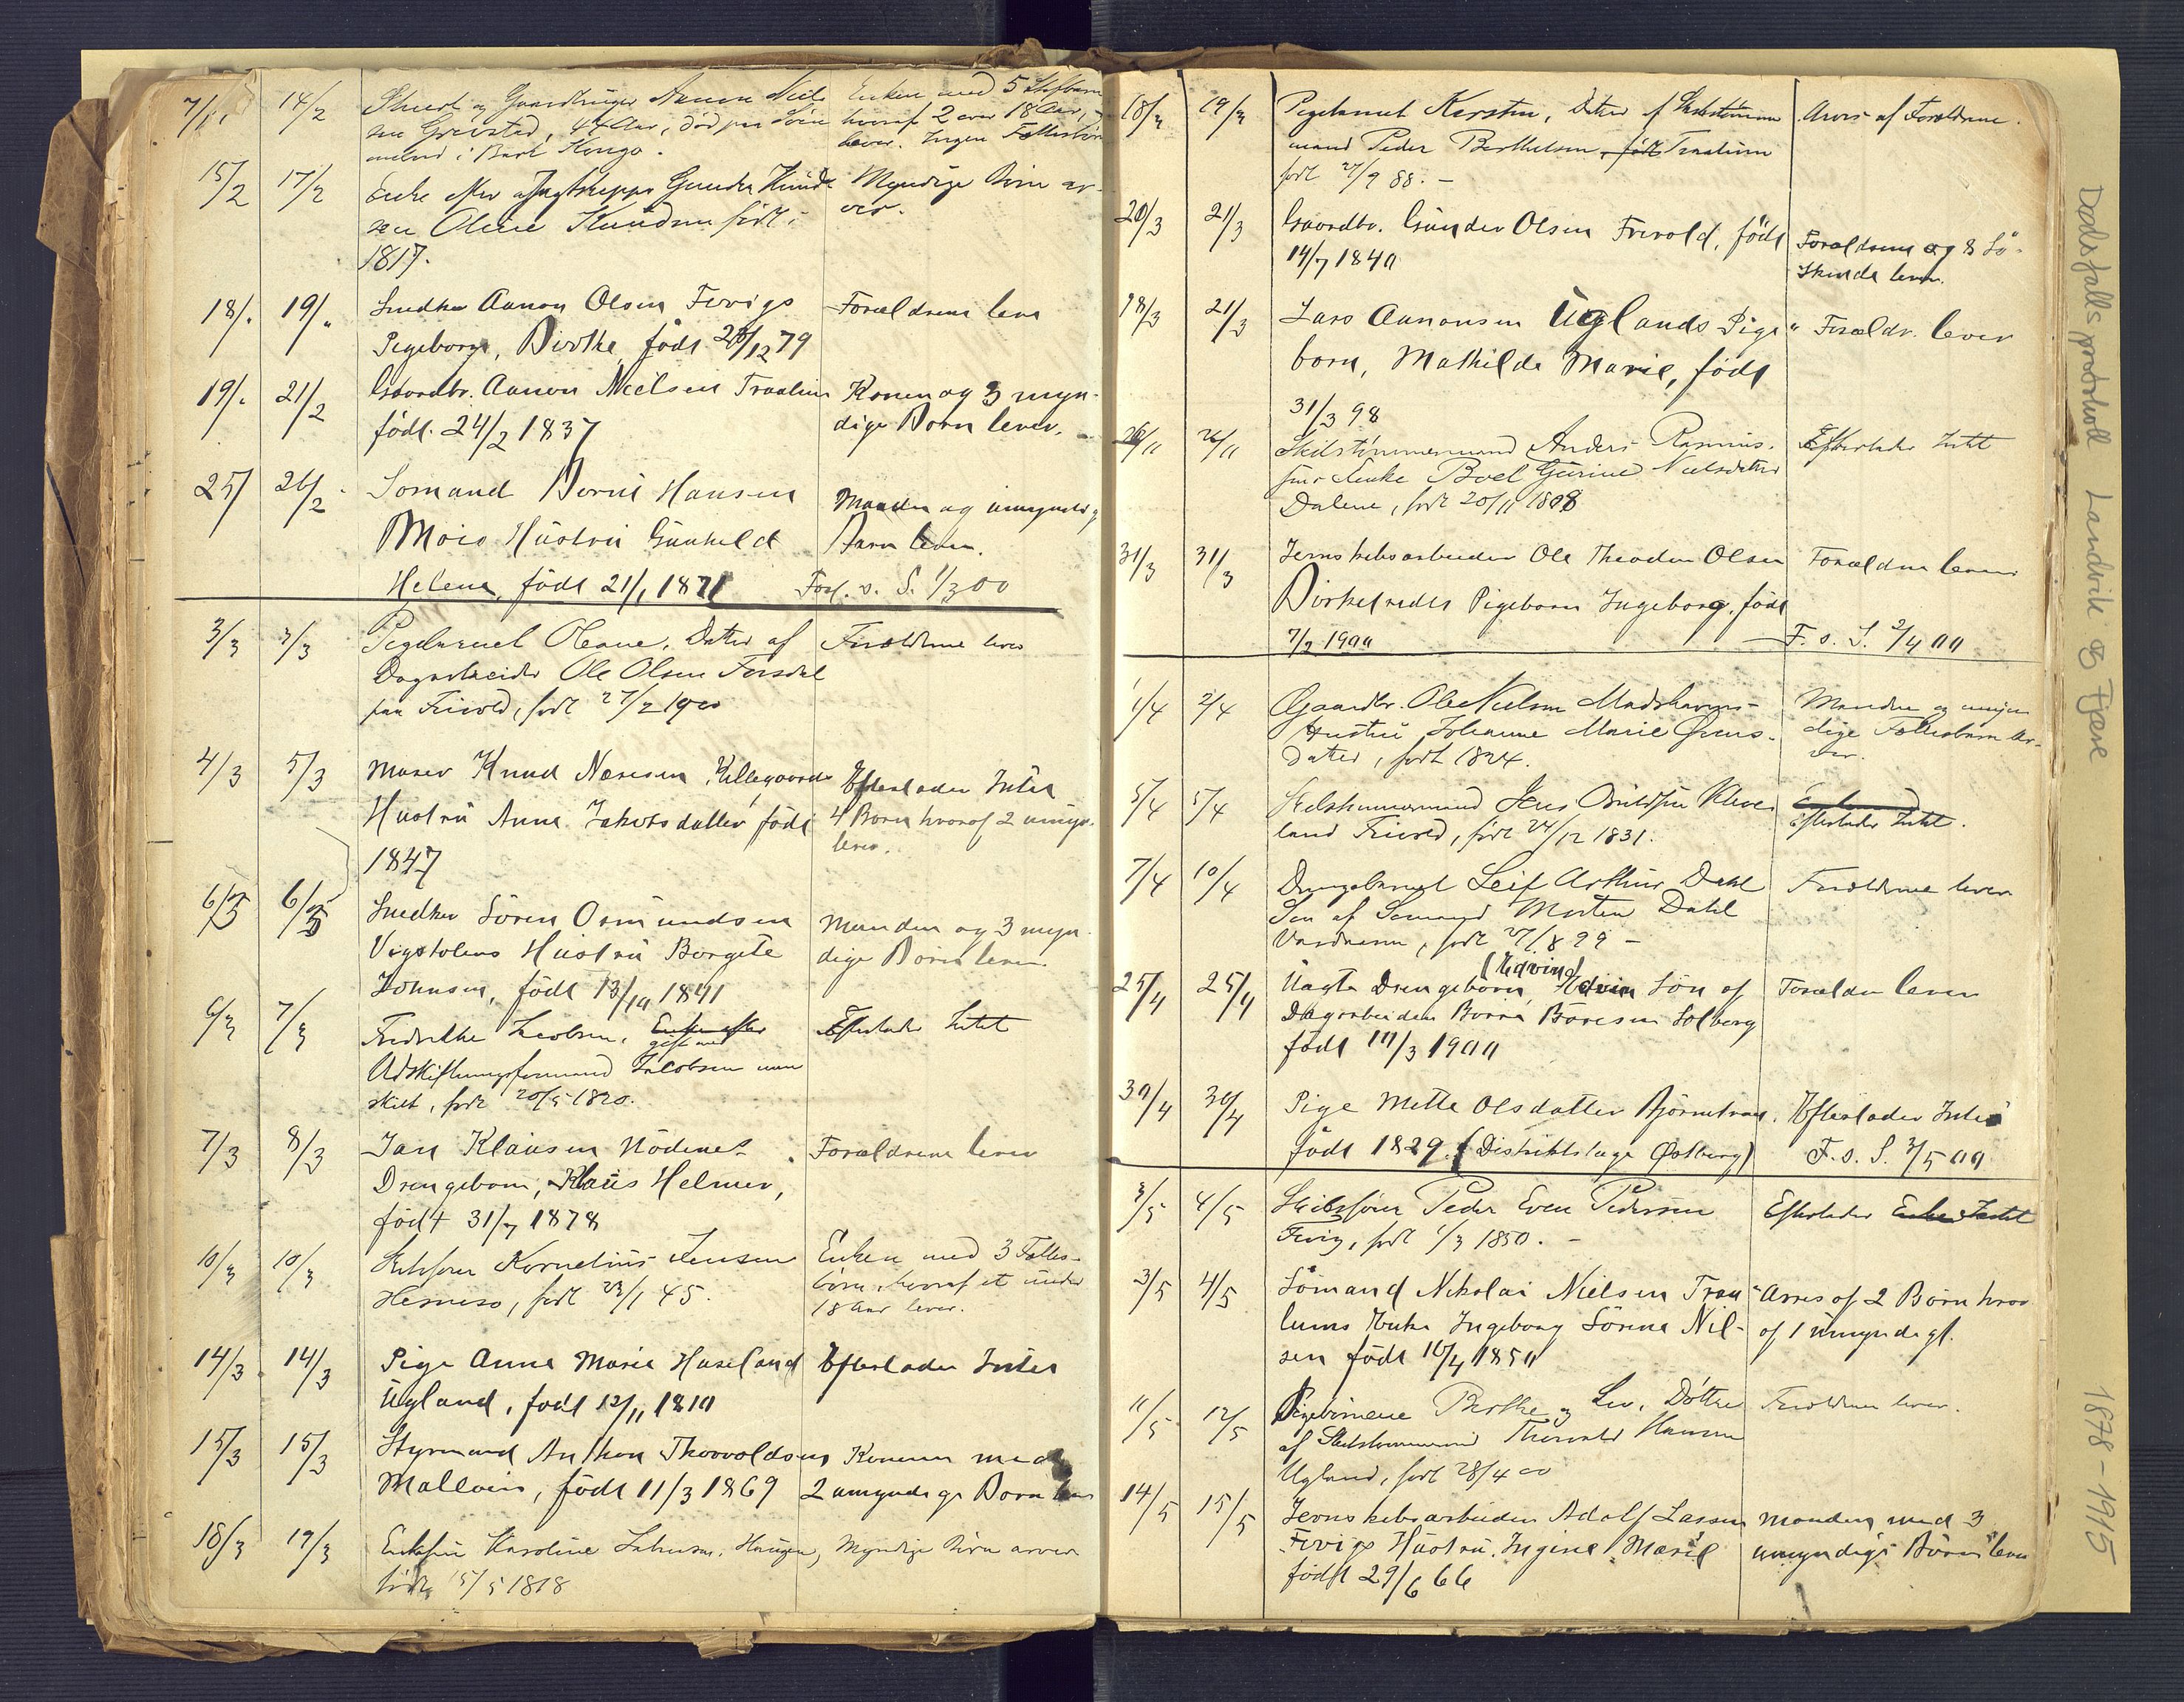 14/2
Aanon Niels
Enken med 5
sen Grevstad, 44 Aar, død paa
hvoraf 2 over 18 Aar,
i Bark Kongo.
lever. Ingen
15/2 17/2 Enke efter Gunder Knud- Myndige Børn ar-
sen Oline Knudsen født i ver.
1817.
18/" 19/" Snedker Aanon Olsen Fevigs Forældrene leve
Pigebarn, Birthe, født 12 79
19/" 21/2 Gaardbr. Aanon Nielsen Traalum Konen og 3 myn-
født 24/2 1837 dige Børn lever.
25/ 26/2 Sømand Hansen Manden og umyndig
Mois Hüstrü Günhild Barn lever.
Helene, født 21/1 1871 Forl. v. S. 1/3 00
3/3 3/3 Pigebarnet Oleane, Datter af Forældrene lever
Dagarbeider Ole Olsen
paa Frivold, født 27/2 1900
4/3 5/3 Murer Knud Killegaards Efterlader Intet
Hüstrü Anne Jakobsdatter født 4 Børn hvoraf 2 umyn.
1847 lever.
6/3 6/3 Snedker Sören Osmundsen Manden og 3 myn-
Vigstolens Hüstrü Borgete dige Børn lever
Johnsen, født 13/10 1841
6/3 7/3 Fredrikke Jacobsen, Enke efter Efterlader Intet
gift med
Udskiftningsformand Jacobsen men
skilt, født 20/5 1820.
7/3 8/3 Jan Klaüsen Nødenes Forældrene lever
Drengebarn, Klaüs Helmer,
født 31/7 1878
10/3 10/3 Skibsfører Kornelius Jensen Enken med 3 Fælles-
Hesneso, født 23/1 45. børn, hvoraf et under
18 Aar lever.
14/3 14/3 Pige Anne Marie Haseland Efterlader Intet
Ugland, født 12/11 1810
15/3 15/3 Styrmand Anthon Thorvoldsens Konen med
født 11/3 1869 2 umyndige Børn
18/3 19/3 Enkefru Karoline Haugen, Myndige Børn arver
født 15/5 1818
18/3 19/3 Pigebarnet Kirsten, Datter af Arves af Forældrene.
mand Peder Berthelsen, født Traalum
født 27/9 88. –
20/3 21/3 Gaardbr. Günder Olsen Frivold, født Forældrene og 8 Sö-
14/7 1840 skende lever.
18/3 21/3 Lars Aanonsen Üglands Pige Forældr. lever
barn, Mathilde Marie, født
31/3 98
26/11 Skibstømmermand Anders Rasmus- Efterlader Intet
Enke Boel Gürine Nielsdatter
Dalene, født 20/11 1808
31/3 31/3 Jernskibsarbeider Ole Theodor Olsen Forældrene lever
Birkelredets Pigebarn Ingeborg, født
1900 F. v. S. 2/4 00
1/4 2/4 Gaardbr. Ole Nielsen Manden og umyn
Hustrü Johanne Marie dige Fællesbørn ar-
datter, født 1824. ver.
5/4 5/4 Skibstømmermand Jens
land Frivold, født 24/12 1831. Efterlader Intet.
7/4 10/4 Drengebarnet Leif Arthur Dahl Forældrene lever
Søn af Sømand Morten Dahl
født 27/8 99 –
(Edvin)
25/4 25/4 Üægte Drengebarn, Edvin Søn af Forældre lever
Dagarbeider Børre Børesen Solberg
født 10/3 1900
30/4 30/4 Pige Mette Olsdatter Efterlader Intet
født 1829. (Distriktslæge Østberg) F. v. S. 3/5 00
3/5 4/5 Skibsfører Peder Even Pedersen Efterlader Enke Intet
Fevig, født 1/3 1850. –
3/5 4/5 Sömand Nikolai Nielsen Traa- Arves af 2 Børn hvor
lums Enke Ingeborg Sörine Nil- af 1 umyndigt.
sen født 10/4 1850
11/5 12/5 Pigebørnene Berthe og Lev, Døttre Forældrene lever.
af Skibstømmermand Thorvald Hansen
Ugland, født 28/4 00
14/5 15/5 Jernskibsarbeider Adolf Larsen Manden med 3
Fevigs Hüstrü Ingine Marie umyndige Børn lever
født 29/6 66
Dødsfallsprotokoll Landvik og Fjære 1878-1915